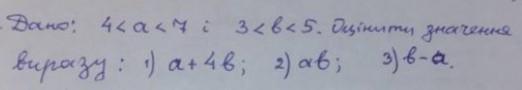 Дано: 4 < a < 7 і 3 < b < 5. Оцінити значення
виразу: 1) a + 4b; 2) ab; 3) b - a.